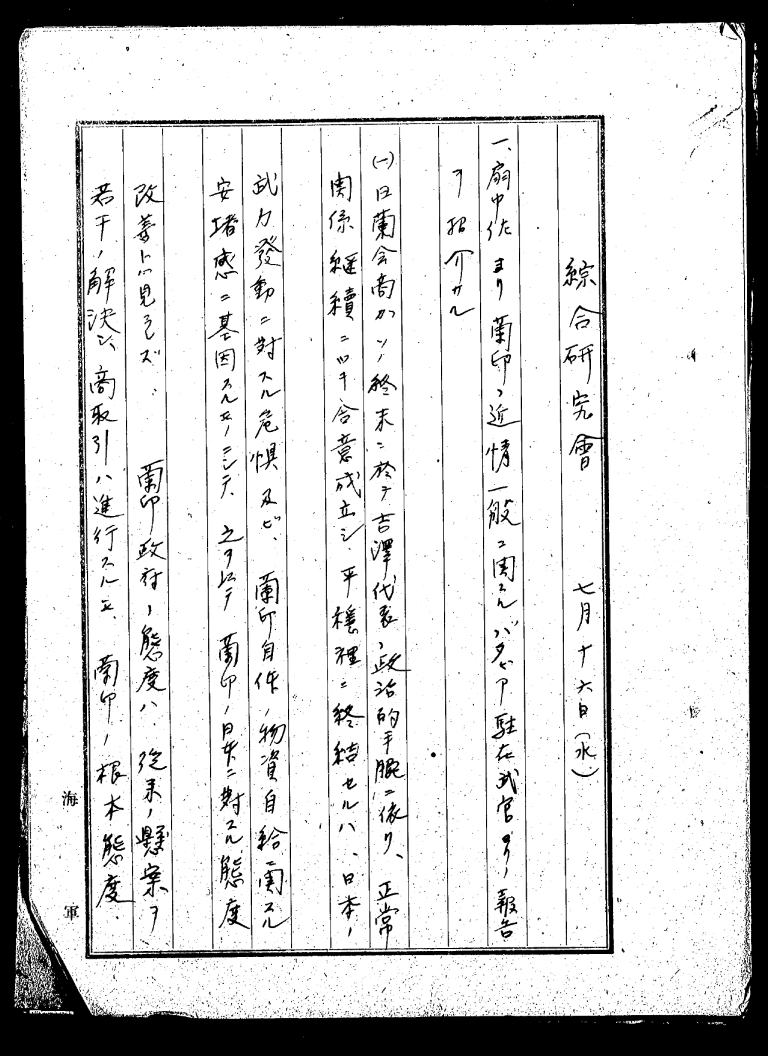 綜合研究會　七月十六日（水）
一、扇中佐ヨリ蘭印ノ近情一般ニ関スルバタビア駐在武官ヨリノ報告
ヲ招介サル
(一)日蘭会商カソノ終末ニ於テ吉澤代表ノ政治的手腕ニ依リ、正常
関係継續ニツキ合意成立シ、平穏裡ニ終結セルハ、日本ノ
武力發動ニ対スル危惧及ビ、蘭印自体ノ物資自給ニ関スル
安堵感ニ基因スルモノニシテ、之ヲ以テ蘭印ノ日本ニ對スル態度
改善トハ見ラレズ、蘭印政府ノ態度ハ、従来ノ懸案ヲ
若干ノ解決シ、商取引ハ進行スルモ、蘭印ノ根本態度、
海軍